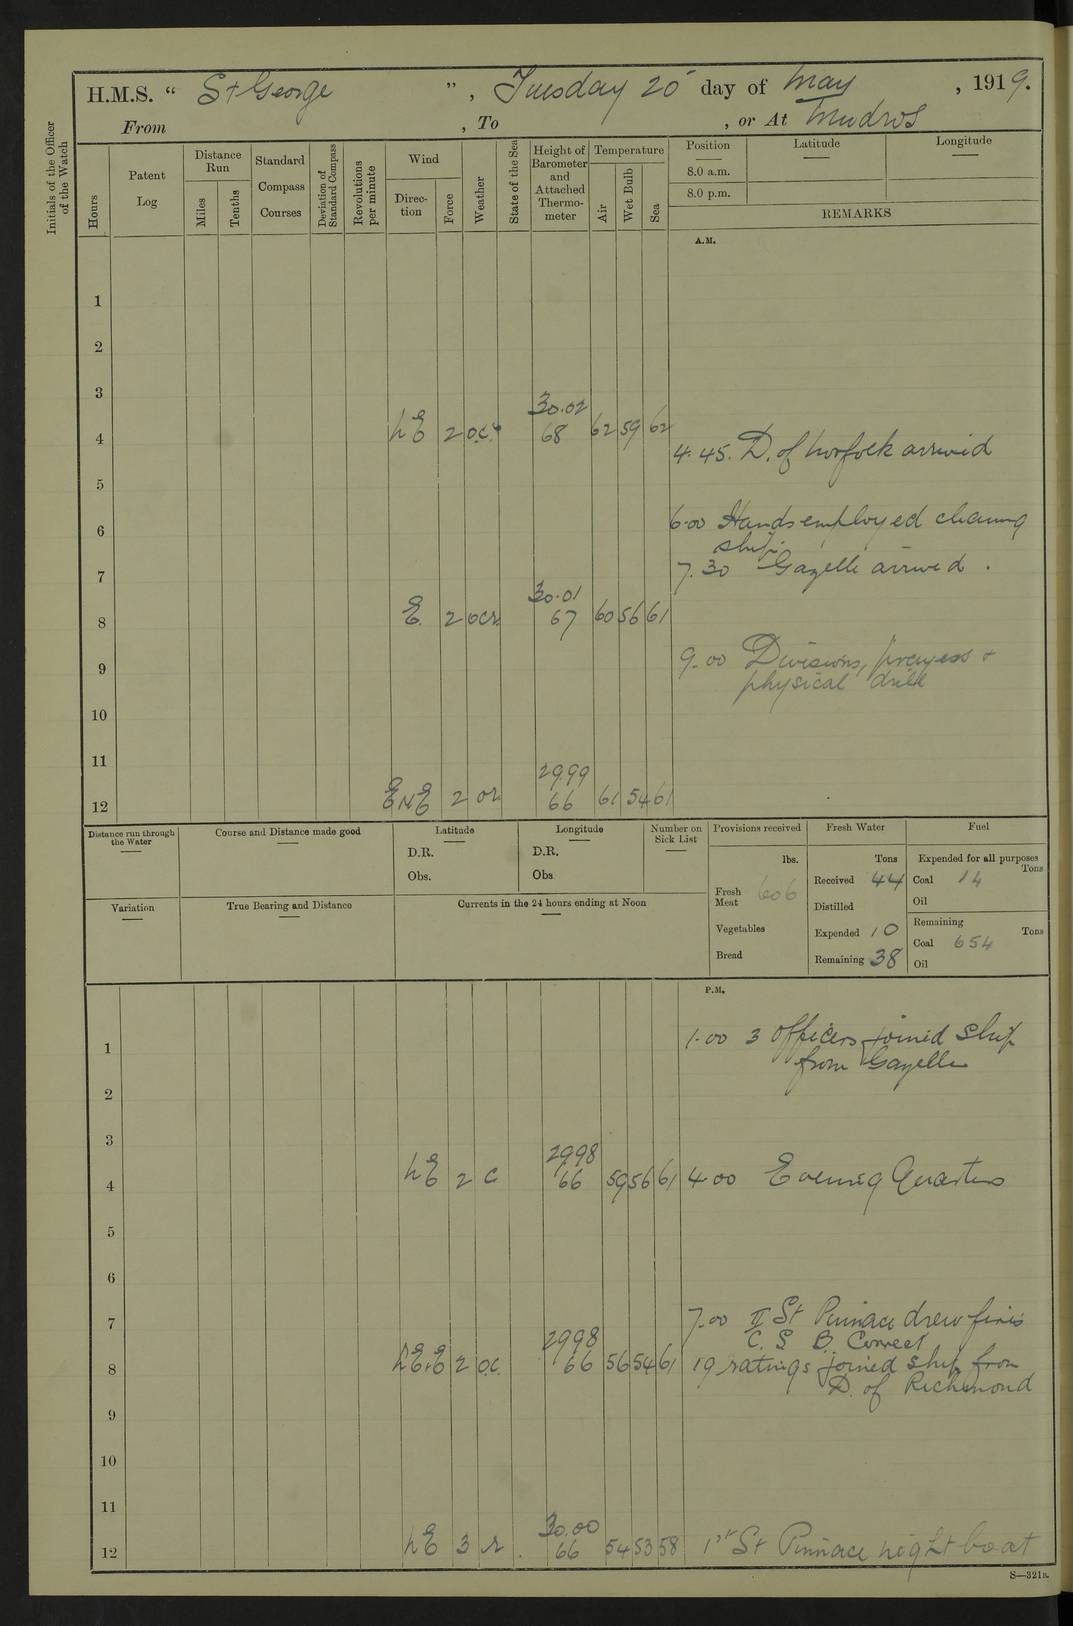 H.M.S. “ St George ”, Tuesday 20 day of May, 1919.
From , To , or At Mudros
Initials of the Officer of the Watch
Hours
Patent Log
Distance Run
Miles
Tenths
Standard Compass Courses
Deviation of Standard Compass
Revolutions per minute
Wind
Direction
Force
Weather
State of the Sea
Height of Barometer and Attached Thermometer
Temperature
Air
Wet Bulb
Sea
Position
8.0 a.m.
8.0 p.m.
Latitude
Longitude
REMARKS
A.M.
1
2
3
30.02
4 NE 2 68 62 59 62
4.45. D. of Norfolk arrived
5
6.00 Hands employed cleaning
6
ship.
7.30 Gazelle arrived.
7
30.01
8 E. 2 ocr. 67 60 56 61
9.00 Divisions, prayers +
9
physical drill
10
11
29.99
12 ENE 2 or 66 61 54 61
Distance run through the Water
Course and Distance made good
Latitude
D.R.
Obs.
Longitude
D.R.
Obs
Number on Sick List
Provisions received
lbs.
Fresh Meat 606
Vegetables
Bread
Fresh Water
Tons
Received 44
Distilled
Expended 10
Remaining 38
Fuel
Expended for all purposes
Tons
Coal 14
Oil
Remaining
Tons
Coal 654
Oil
Variation
True Bearing and Distance
Currents in the 24 hours ending at Noon
P.M.
1.00 3 Officers joined ship
1
from Gazelle
2
3
2998
4 NE 2 c 66 59 56 61 4.00 Evening Quarters
5
6
7.00 II St Pinnace drew fires
7
C. S. B. Correct
2998
8 2 oc. 66 56 54 61 19 ratings joined ship from
D. of Richmond
9
10
11
30.00
12 NE 3 r. 66 54 53 58 1st St Pinnace night boat
S—321B.